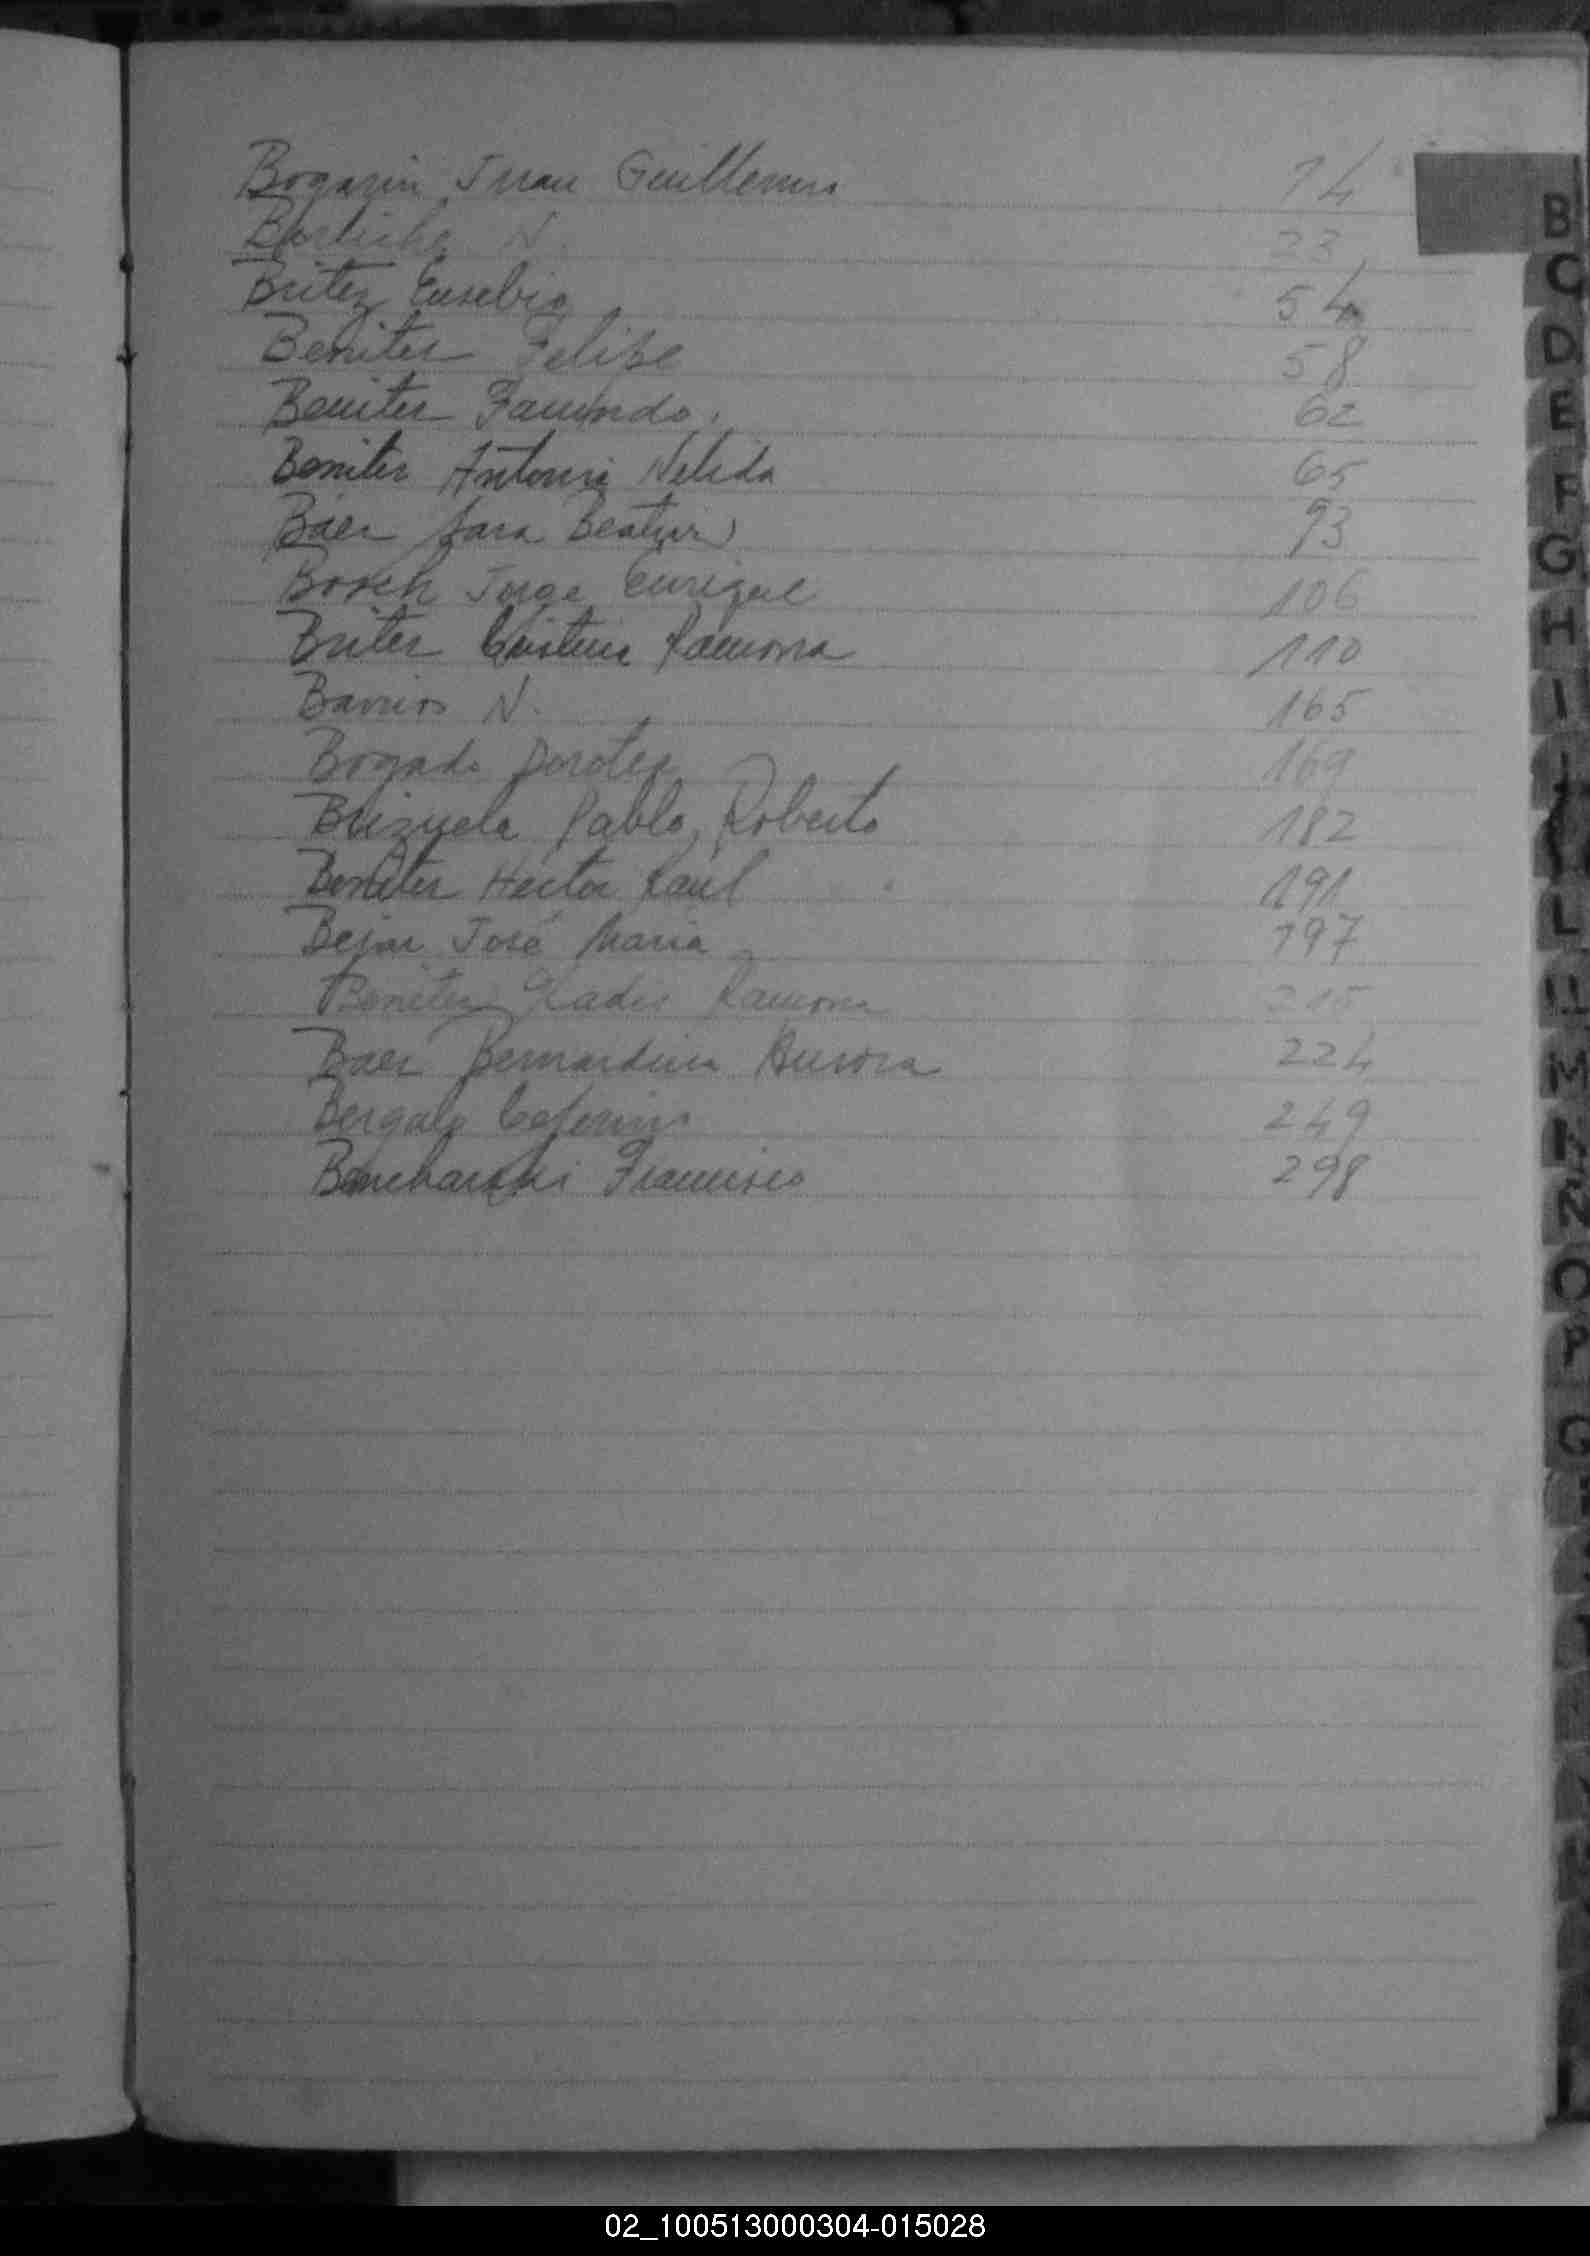 Bogarin Juan Guillermo 14
N. 23
Britez Eusebio 54
Beniter Felipe 58
Beniter Facundo. 62
Beniter Antonia Nelida 65
Báer Sara Beatriz 93
Bosch Jorge Enrique 106
Briter Cristina Ramona 110
Barrios N. 165
Bogado Dorotea 169
Brizuela Pablo Roberto 182
Beniter Héctor Raúl 191
Bejar José Maria 197
Beniter Gladis Ramona 215
Baer Bernardina Aurora 224
Bergalo Ceferino 249
Francisco 298
B
C
D
E
F
G
H
I
J
L
M
N
Ñ
O
P
02_100513000304-015028